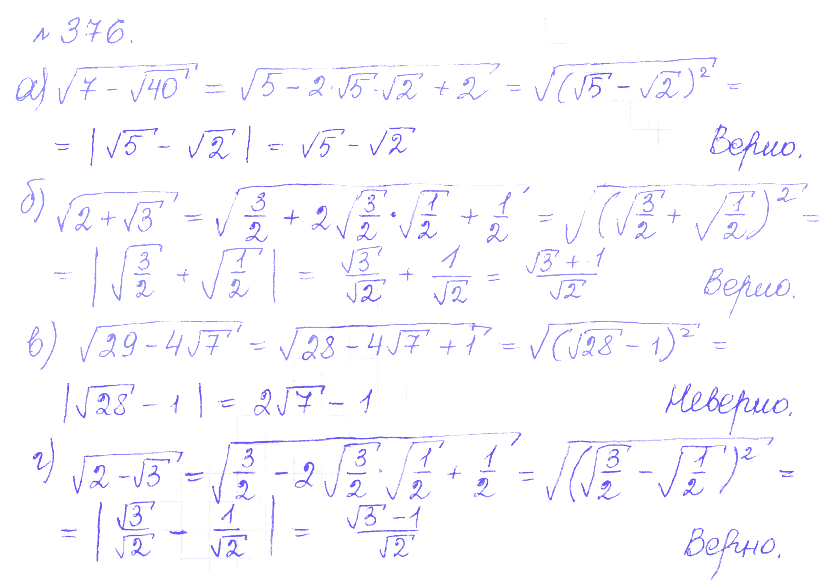 № 376.
а) √(7 - √40) = √(5 - 2·√5·√2 + 2) = √((√5 - √2)²) =
= |√5 - √2| = √5 - √2 Верно.
б) √(2 + √3) = √(3/2 + 2√(3/2)·√(1/2) + 1/2) = √((√(3/2) + √(1/2))²) =
= |√(3/2) + √(1/2)| = √3/√2 + 1/√2 = (√3 + 1)/√2 Верно.
в) √(29 - 4√7) = √(28 - 4√7 + 1) = √((√28 - 1)²) =
|√28 - 1| = 2√7 - 1 Неверно.
г) √(2 - √3) = √(3/2 - 2√(3/2)·√(1/2) + 1/2) = √((√(3/2) - √(1/2))²) =
= |√3/√2 - 1/√2| = (√3 - 1)/√2 Верно.